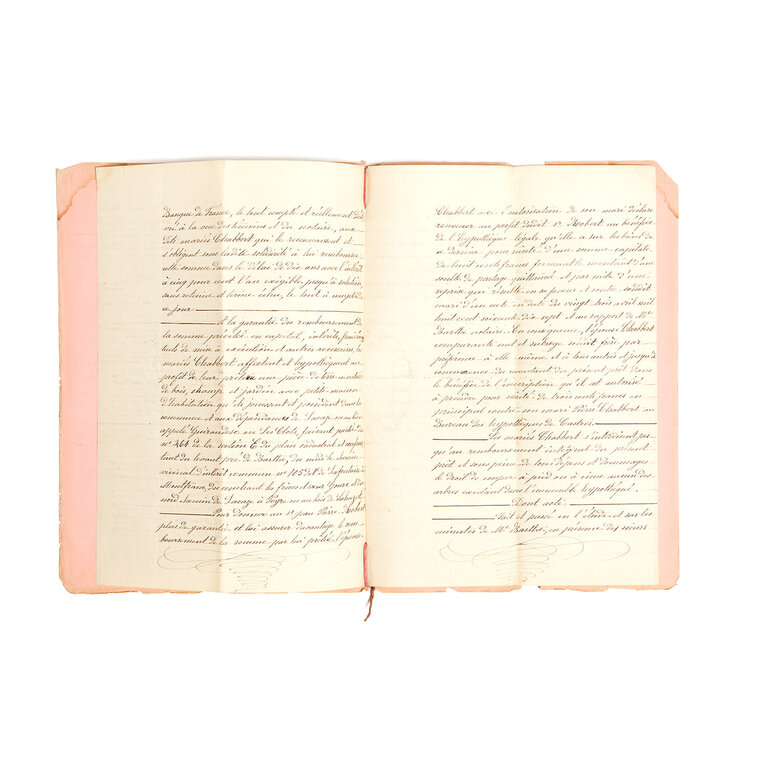 Banque de France, le tout compté et réellement
à la vue des témoins et du notaire, aux
dits mariés Chabbert qui le reconnaissent et
s'obligent sous ladite solidarité à lui rembourser
cette somme dans le délai de dix ans avec l'intérêt
à cinq pour cent l'an exigible jusqu'à solution
sans retenue et terme échu, le tout à compter
ce jour
A la garantie du remboursement de
la somme prêtée en capital, intérêts, frais
de mise à exécution et autres accessoires, les
mariés Chabbert affectent et hypothèquent au
profit de leur prêteur une pièce de terre
de bois, champ et jardin avec petite maison
d'habitation qu'ils jouissent et possèdent dans la
commune et aux dépendances de
appelé ou Les Clots, faisant partie du
n° 464 de la section E du plan cadastral et
du levant pré de Barthe, du midi le chemin
vicinal d'intérêt commun n° 105 dit de à
du couchant les frères et sœur et du
nord
Pour donner au sr Jean Pierre Robert
plus de garantie et lui assurer davantage le rem-
boursement de la somme par lui prêtée, l'épouse
Chabbert avec l'autorisation de son mari déclare
renoncer au profit dudit sr Robert au bénéfice
de l'hypothèque légale qu'elle a sur les biens de
ce dernier pour sûreté d'une somme capitale
de huit cents francs formant le montant d'une
soulte de partage quittancée et par suite d'une
reprise qui résulte en sa faveur et contre sondit
mari d'un acte en date du vingt trois avril mil
huit cent soixante dix sept et au rapport de Me
Barthe notaire. En conséquence, l'épouse Chabbert
comparante met et subroge ledit prêteur par
préférence à elle même et à tous autres et jusqu'à
concurrence du montant du présent prêt dans
le bénéfice de l'inscription qu'il est autorisé
à prendre pour sûreté de trois cents francs en
principal contre son mari Pierre Chabbert au
Bureau des hypothèques de Castres
Les mariés Chabbert s'interdisent jus-
qu'au remboursement intégral du présent
prêt et sous peine de tous dépens et dommages
le droit de couper à pied ou à cime aucun des
arbres existant dans l'immeuble hypothéqué.
Dont acte
Fait et passé en l'étude et sur les
minutes de Me Barthe, en présence des sieurs